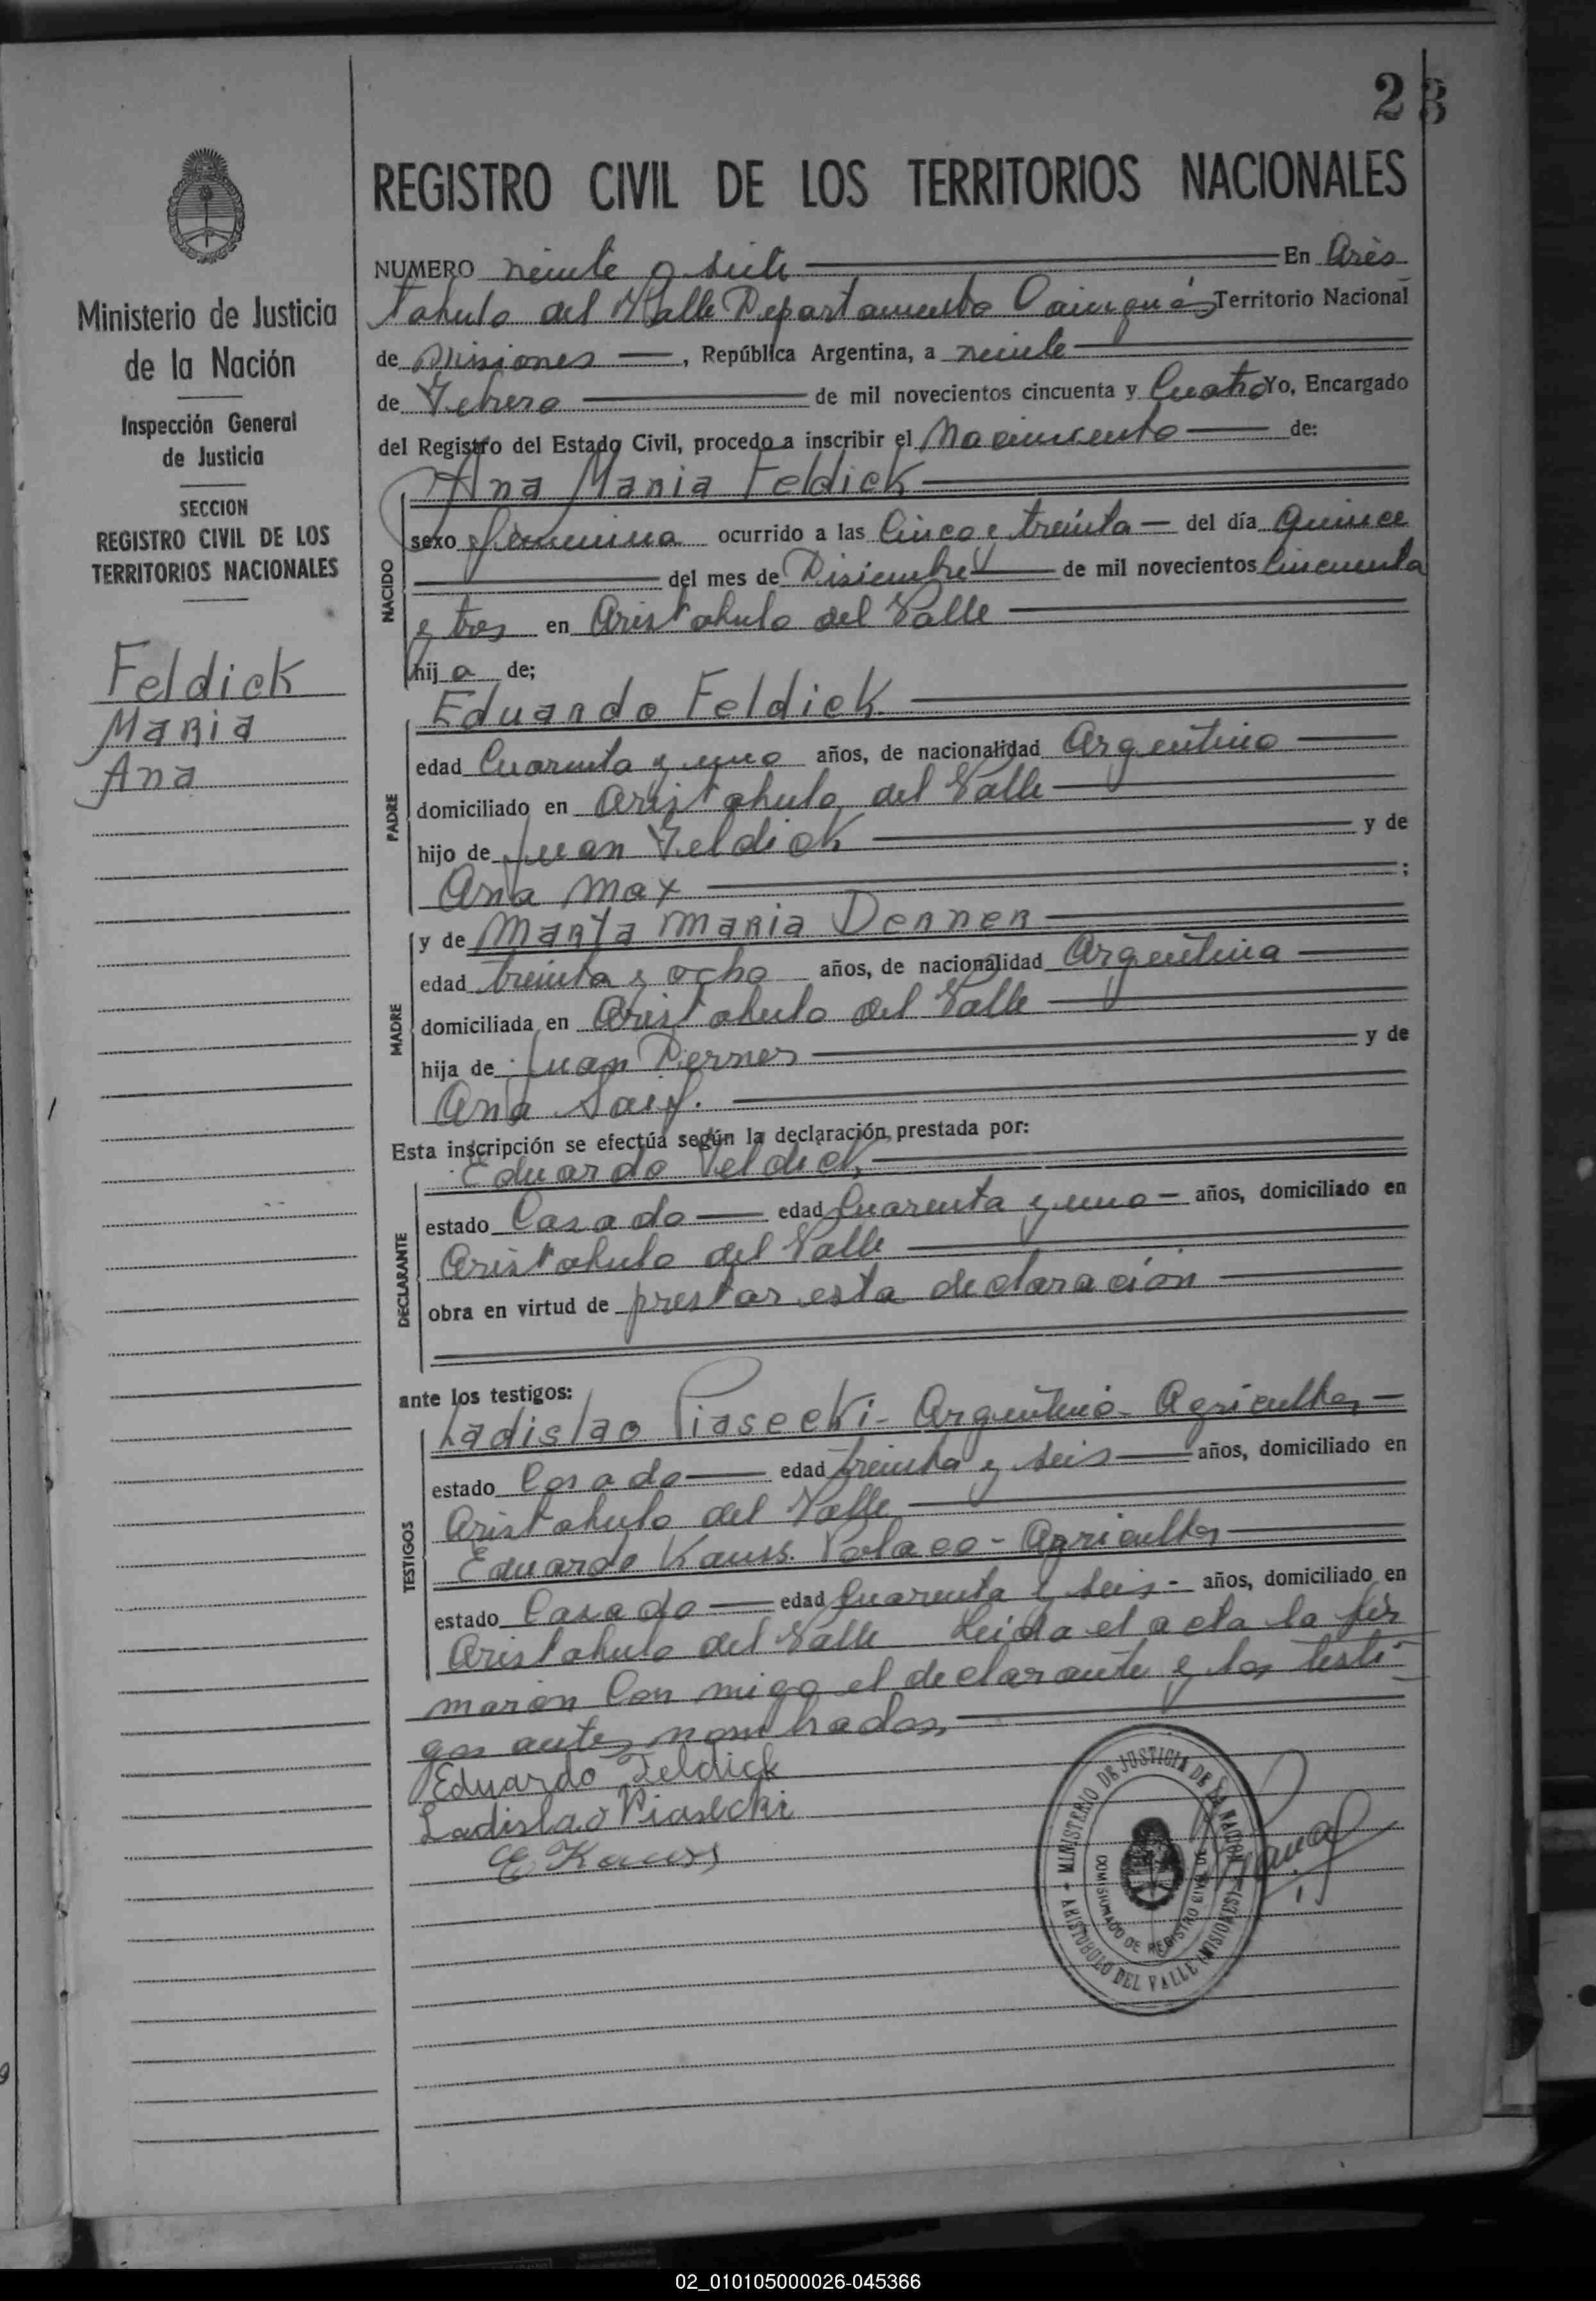 23
REGISTRO CIVIL DE LOS TERRITORIOS NACIONALES
Ministerio de Justicia
de la Nación
Inspección General
de Justicia
SECCION
REGISTRO CIVIL DE LOS
TERRITORIOS NACIONALES
Feldick
Maria
Ana
NUMERO veinte y siete En Aris
tobulo del Valle Departamento Cainguás Territorio Nacional
de Misiones, República Argentina, a veinte
de Febrero de mil novecientos cincuenta y Cuatro Yo, Encargado
del Registro del Estado Civil, procedo a inscribir el Nacimiento de:
Ana Maria Feldick
NACIDO
sexo femenina ocurrido a las Cinco y treinta del día Quince
del mes de Disiembre de mil novecientos Cincuenta
y tres en Aristobulo del Valle
hija de;
Eduardo Feldick
PADRE
edad Cuarenta y uno años, de nacionalidad Argentino
domiciliado en Aristobulo del Valle
hijo de Juan Feldick y de
Ana Max ;
MADRE
y de Marta Maria Derner
edad treinta y ocho años, de nacionalidad Argentina
domiciliada en Aristobulo del Valle
hija de Juan Derner y de
Ana
Esta inscripción se efectúa según la declaración prestada por:
Eduardo Feldick
DECLARANTE
estado Casado edad Cuarenta y uno años, domiciliado en
Aristobulo del Valle
obra en virtud de prestar esta declaración
ante los testigos:
Ladislao Piasecki - Argentino - Agricultor
TESTIGOS
estado Casado edad treinta y seis años, domiciliado en
Aristobulo del Valle
Eduardo Kauss. Polaco - Agricultor
estado Casado edad Cuarenta y seis - años, domiciliado en
Aristobulo del Valle Leida el acta la fir
maron Con migo el declarante y los testi-
gos antes nombrados
Eduardo Feldick
Ladislao Piasecki
E Kauss
MINISTERIO DE JUSTICIA DE LA NACION
COMISIONADO DE REGISTRO CIVIL
ARISTOBULO DEL VALLE (MISIONES)
02_010105000026-045366